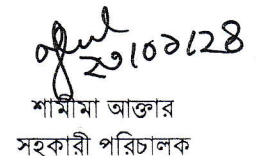 ২৩/০১/২৪
শামীমা আক্তার
সহকারী পরিচালক